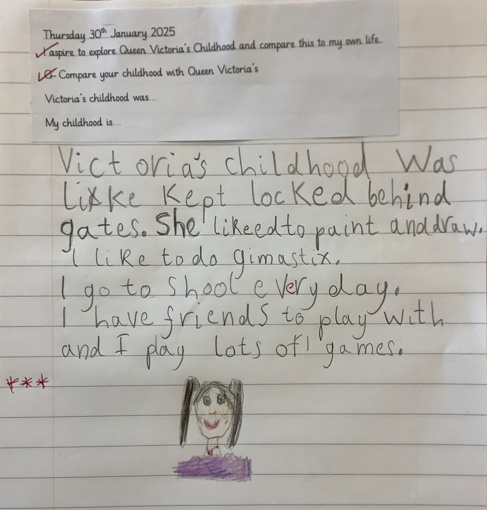 Thursday 30th January 2025
I aspire to explore Queen Victoria's Childhood and compare this to my own life.
LO- Compare your childhood with Queen Victoria's
Victoria's childhood was...
My childhood is...
Victoria's childhood was
Lixke kept locked behind
gates. She likeedto paint anddraw.
I like todo gimastix.
I go to shool every day.
I have friends to play with
and I play lots of games.
***